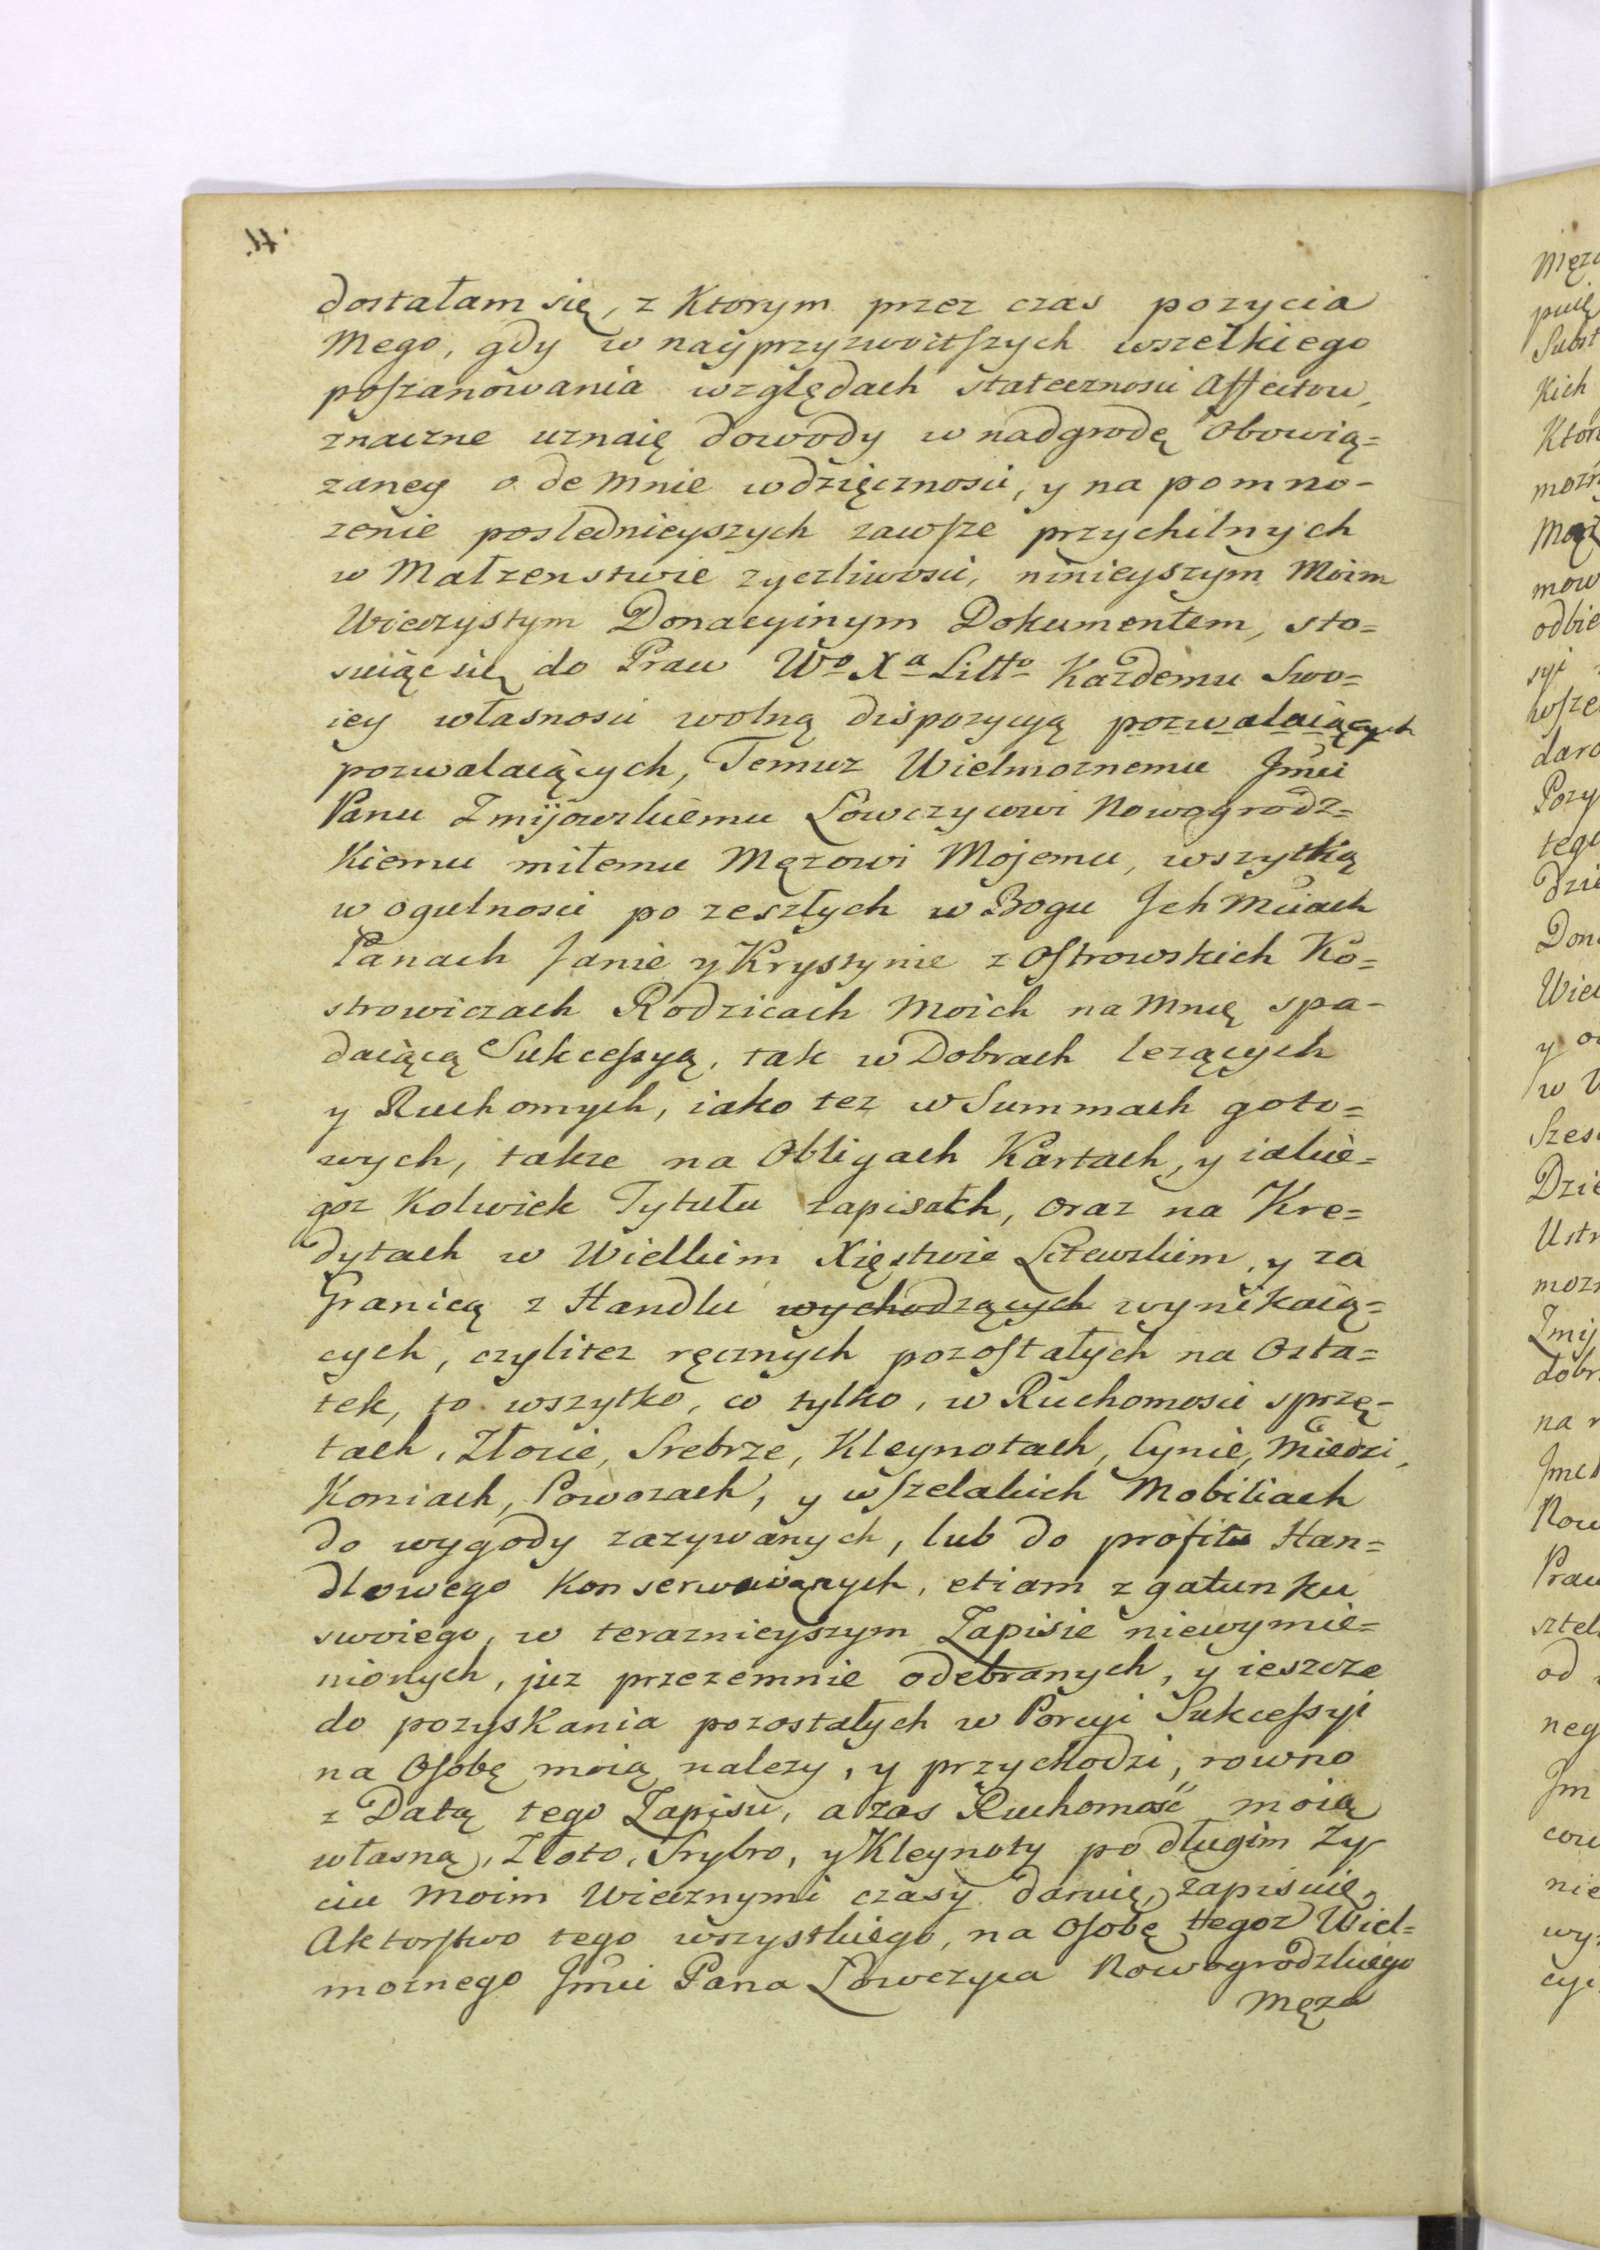 dostałam się, z Ktorym przez czas pozycia
Mego, gdy w nayprzyzwoitszych wszelkiego
poszanowania względach stateczności Affectow,
znaczne uznaię dowody w nadgrodę Obowią=
zaney o de mnie wdzięczności, y na pomno-
zenie poslednieyszych zawsze przychilnych
w Małzenstwie zyczliwości, ninieyszym Moim
Wieczystym Donacyinym Dokumentem, sto=
suiąc się do Praw Wo Xa Litto Kazdemu Swo=
iey własności wolną dispozycyą pozwalaiących
pozwalaiących, Temuz Wielmoznemu Jmci
Panu Zmijowskiemu Łowczycowi Nowogrodz=
Kiemu miłemu Męzowi Mojemu, wszytką
w ogulności po zeszłych w Bogu Ich Mciach
Panach Janie y Krystynie z Ostrowskich Ko=
strowiczach Rodzicach Moich na Mnię spa-
daiącą Sukcessyą, tak w Dobrach lezących
y Ruchomych, iako tez w Summach goto=
wych, takze na Obligach Kartach, y iakie=
goz Kolwiek Tytułu zapisach, oraz na Kre=
dytach w Wielkim Xięstwie Litewskim, y za
Granicą z Handlu wychodzących wynikaią=
cych, czylitez ręcznych pozostałych na Osta=
tek, to wszytko, co tylko, w Ruchomości sprzę-
tach, Złocie, Srebrze, Kleynotach, Cynie, Miedzi,
Koniach, Powozach, y wszelakich Mobiliach
do wygody zazywanych, lub do profitu Han=
dlowego Konserwuiących, etiam z gatunku
swoiego, w teraznieyszym Zapisie niewymie=
nionych, juz przezemnie odebranych, y ieszcze
do pozyskania pozostałych w Porcyi Sukcessyi
na Osobę moią nalezy, y przychodzi, rowno
z Datą tego Zapisu, a zas Ruchomość moią
własną, Złoto, Srybro, y Kleynoty po długim Zy-
ciu Moim Wiecznymi czasy daruię, zapisuię,
Aktorstwo tego wszystkiego, na Osobę tegoz Wiel=
moznego Jmci Pana Łowczyca Nowogrodzkiego
Męza